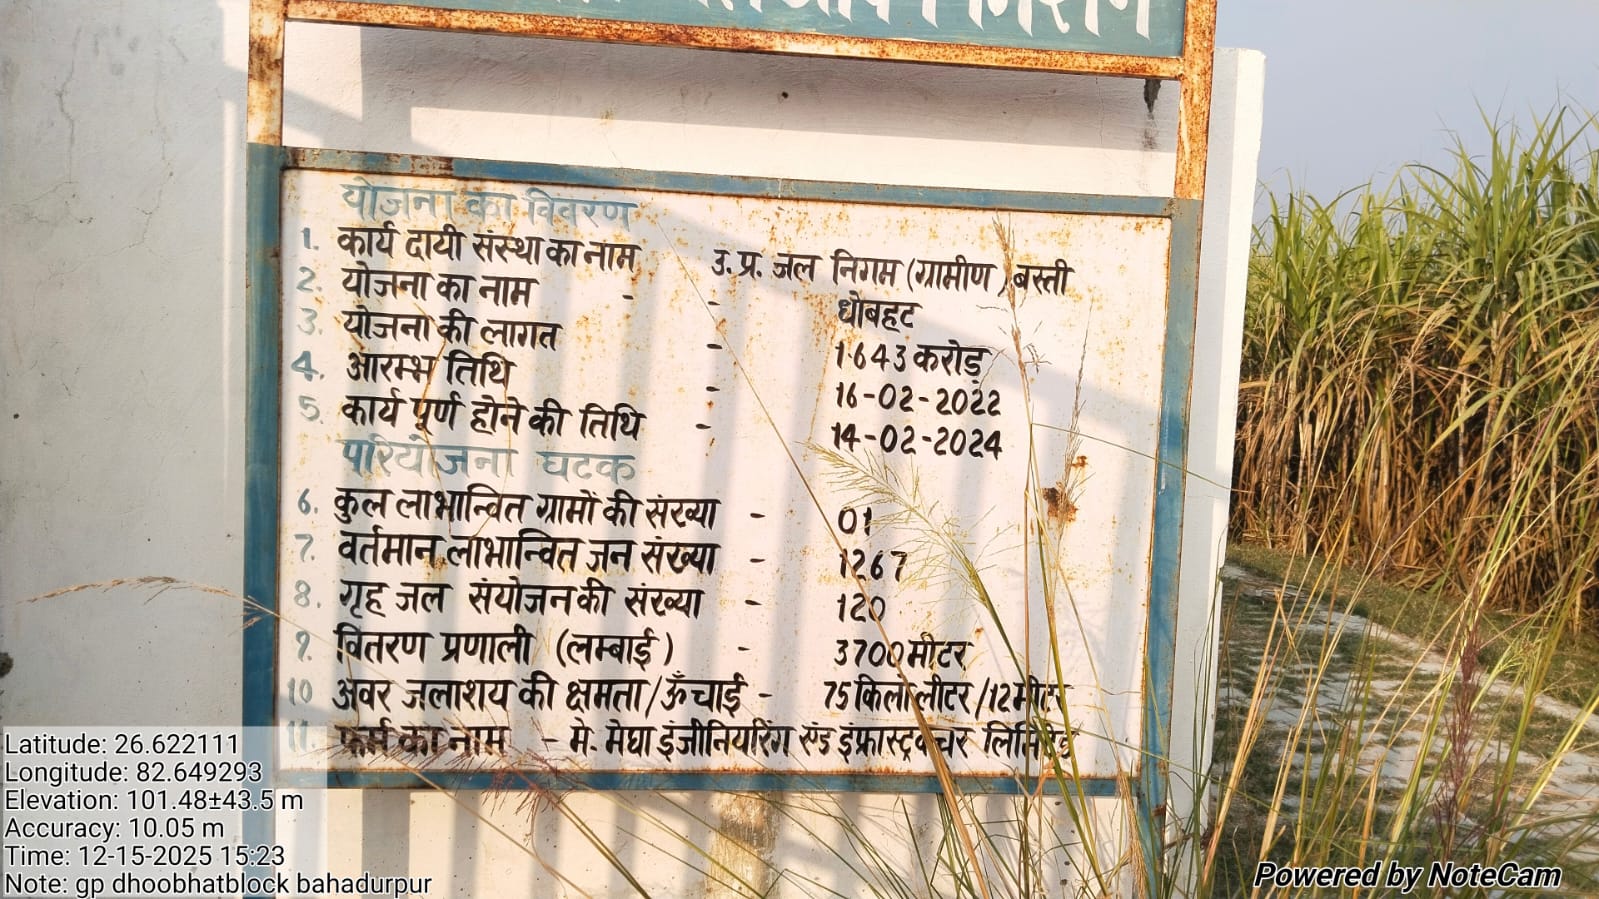 योजना का विवरण
1. कार्य दायी संस्था का नाम उ. प्र. जल निगम (ग्रामीण) बस्ती
2. योजना का नाम - - धोबहट
3. योजना की लागत - 1.643 करोड़
4. आरम्भ तिथि - 16-02-2022
5. कार्य पूर्ण होने की तिथि - 14-02-2024
परियोजना घटक
6. कुल लाभान्वित ग्रामों की संख्या - 01
7. वर्तमान लाभान्वित जन संख्या - 1267
8. गृह जल संयोजन की संख्या - 120
9. वितरण प्रणाली (लम्बाई) - 3700 मीटर
10 अवर जलाशय की क्षमता/ऊँचाई - 75 किलोलीटर/12 मीटर
11. फर्म का नाम - मे. मेघा इंजीनियरिंग एंड इंफ्रास्ट्रक्चर लिमिटेड
Latitude: 26.622111
Longitude: 82.649293
Elevation: 101.48±43.5 m
Accuracy: 10.05 m
Time: 12-15-2025 15:23
Note: gp dhoobhatblock bahadurpur
Powered by NoteCam